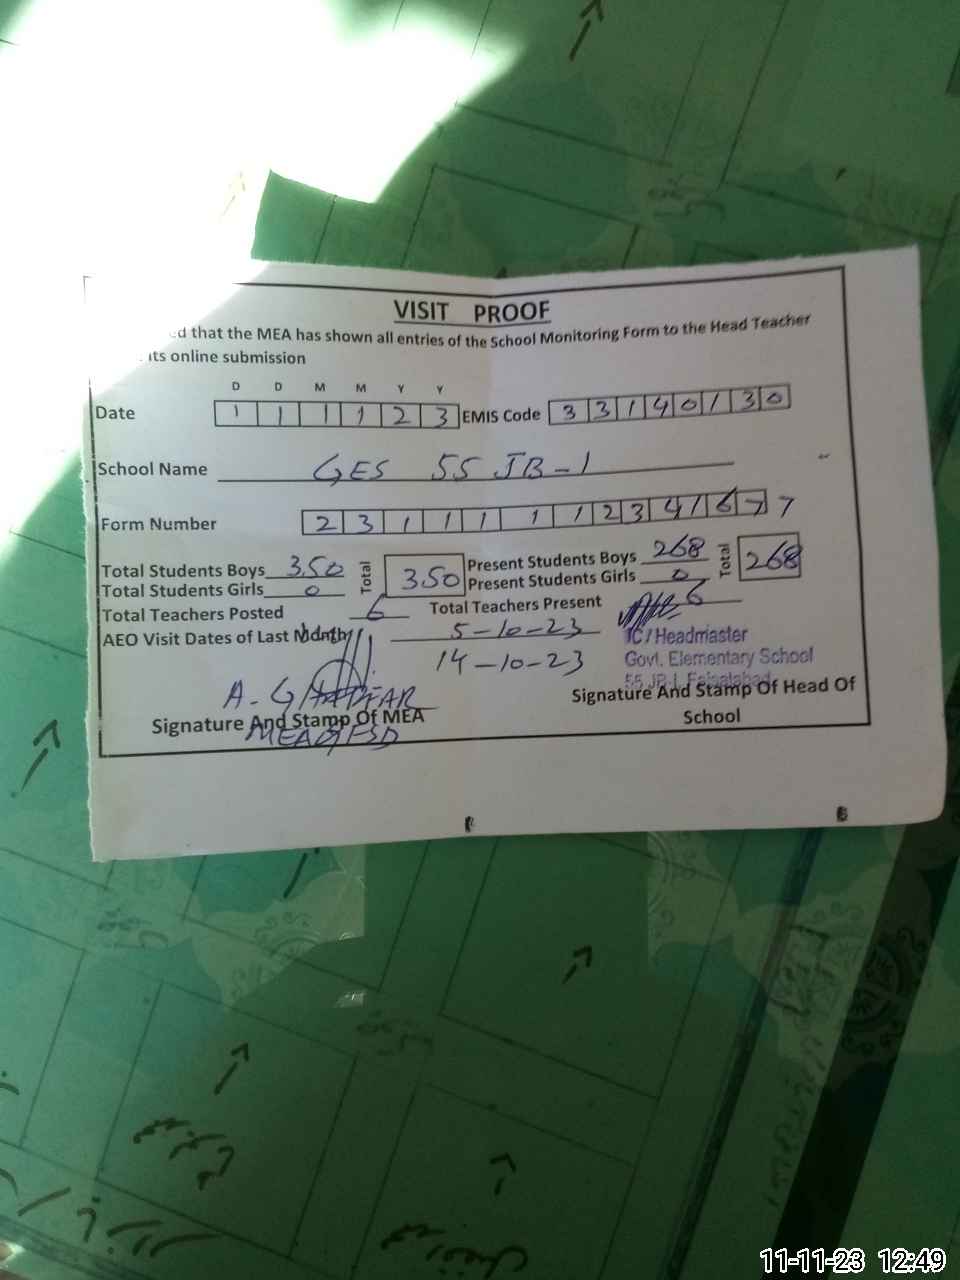 VISIT PROOF
ed that the MEA has shown all entries of the School Monitoring Form to the Head Teacher
its online submission
D D M M Y Y
Date 1 1 1 1 2 3 EMIS Code 3 3 1 4 0 1 3 0
School Name GES 55 JB-1
Form Number 2 3 1 1 1 1 1 2 3 4 1 6 7 7
Total Students Boys 350 Total 350 Present Students Boys 268 Total 268
Total Students Girls 0 Present Students Girls 0
Total Teachers Posted 6 Total Teachers Present 6
AEO Visit Dates of Last Month 5-10-23
14-10-23
IC/Headmaster
Govt. Elementary School
55 JB-I, Faisalabad
A. GHAFFAR
Signature And Stamp Of MEA
Signature And Stamp Of Head Of
School
11-11-23 12:49